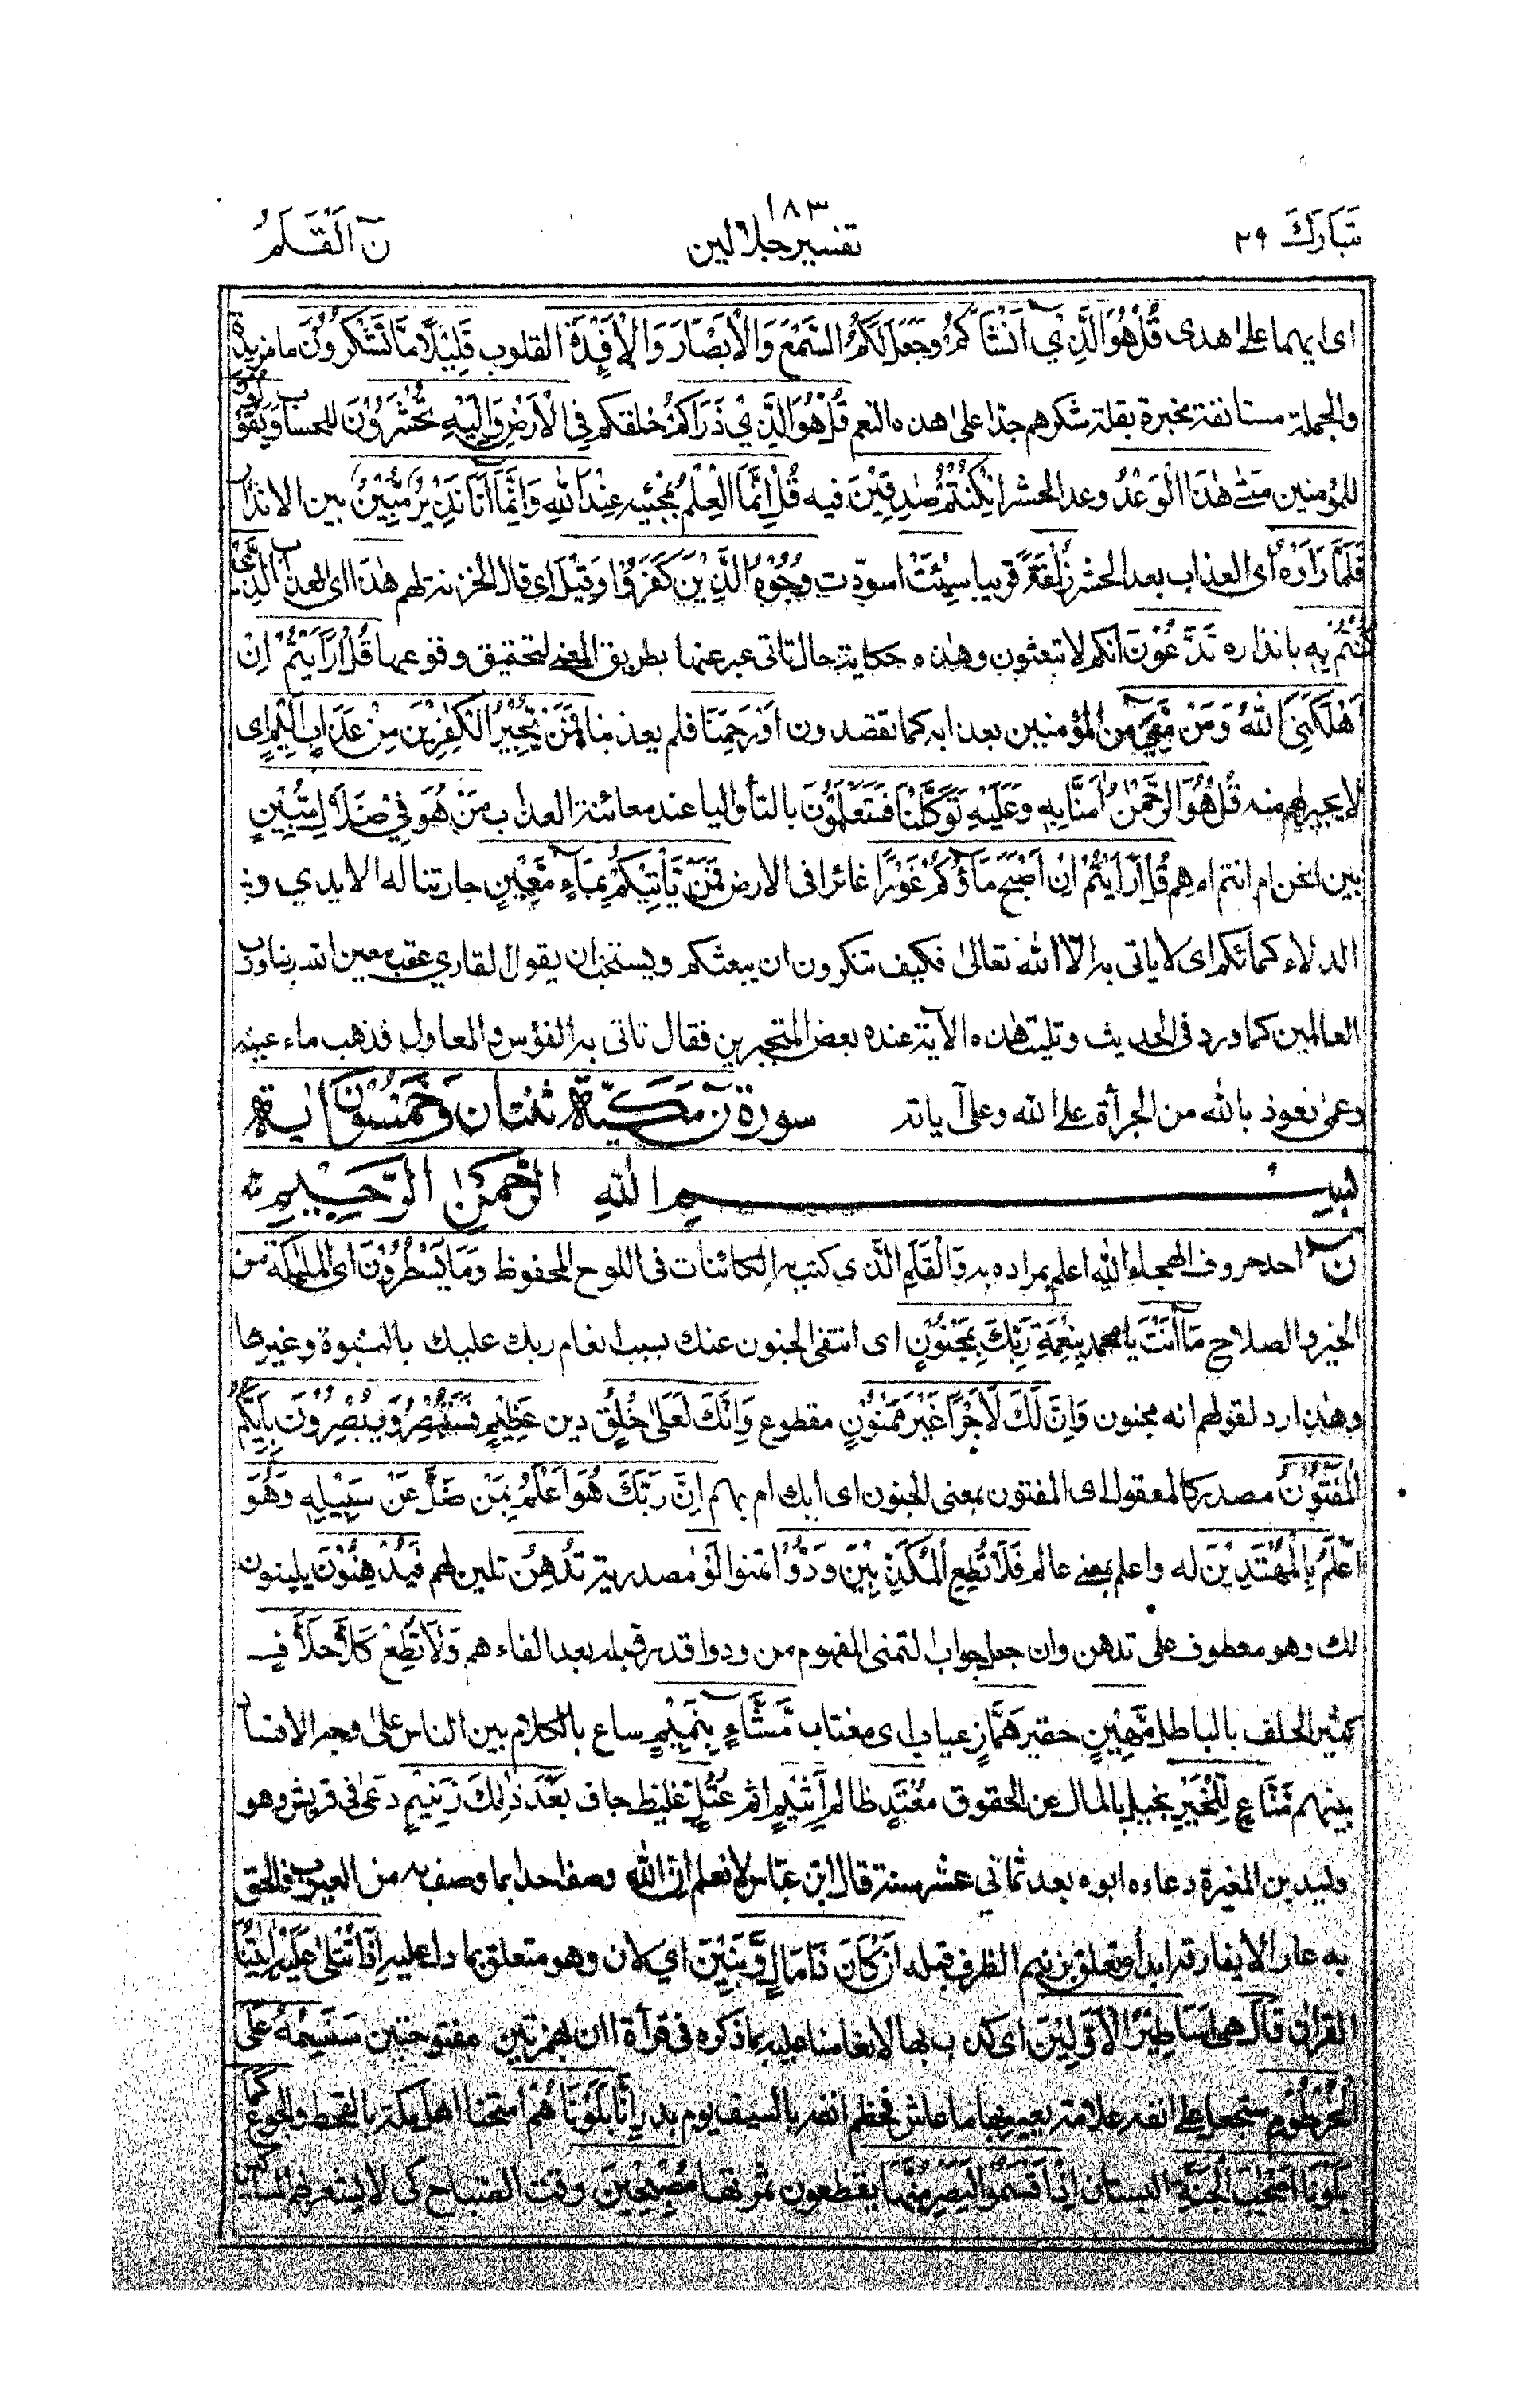 تَبَارَكَ ٢٩
١٨٣
تفسير جلالين
نٓ القَلَمُ
اى ايهما على هدى قُلْ هُوَ الَّذِيْٓ اَنْشَاَكُمْ وَجَعَلَ لَكُمُ السَّمْعَ وَالْاَبْصَارَ وَالْاَفْـِٕدَةَ القلوب قَلِيْلًا مَّا تَشْكُرُوْنَ ما مزيدة
والجملة مستانفة مخبرة بقلة شكرهم جدا على هذه النعم قُلْ هُوَ الَّذِيْ ذَرَاَكُمْ خلقكم فِي الْاَرْضِ وَاِلَيْهِ تُحْشَرُوْنَ للحساب وَيَقُوْلُوْنَ
للمؤمنين مَتٰى هٰذَا الْوَعْدُ وعد الحشر اِنْ كُنْتُمْ صٰدِقِيْنَ فيه قُلْ اِنَّمَا الْعِلْمُ بمجئيه عِنْدَ اللّٰهِ وَاِنَّمَآ اَنَا نَذِيْرٌ مُّبِيْنٌ بين الانذار
فَلَمَّا رَاَوْهُ اى العذاب بعد الحشر زُلْفَةً قريبا سِيْٓئَتْ اسودّت وُجُوْهُ الَّذِيْنَ كَفَرُوْا وَقِيْلَ اى قال الخزنة لهم هٰذَا اى العذاب الَّذِيْ
كُنْتُمْ بِهٖ بانذاره تَدَّعُوْنَ انكم لا تبعثون وهذه حكاية حال تاتى عبر عنها بطريق المضى لتحقيق وقوعها قُلْ اَرَاَيْتُمْ اِنْ
اَهْلَكَنِيَ اللّٰهُ وَمَنْ مَّعِيَ من المؤمنين بعذابه كما تقصدون اَوْ رَحِمَنَا فلم يعذبنا فَمَنْ يُّجِيْرُ الْكٰفِرِيْنَ مِنْ عَذَابٍ اَلِيْمٍ اى
لا يجير لهم منه قُلْ هُوَ الرَّحْمٰنُ اٰمَنَّا بِهٖ وَعَلَيْهِ تَوَكَّلْنَا فَسَتَعْلَمُوْنَ بالتاء والياء عند معائنة العذاب مَنْ هُوَ فِيْ ضَلٰلٍ مُّبِيْنٍ
بين انحن ام انتم ام هم قُلْ اَرَاَيْتُمْ اِنْ اَصْبَحَ مَآؤُكُمْ غَوْرًا غائرا فى الارض فَمَنْ يَّاْتِيْكُمْ بِمَآءٍ مَّعِيْنٍ جار تناله الايدي و
الدلاء كمائكم اى لا ياتى به الا الله تعالى فكيف تنكرون ان يبعثكم ويستحب ان يقول القاري عقب معين الله ربنا ورب
العالمين كما ورد فى الحديث وتليت هذه الآية عند بعض المتجبرين فقال تاتى به الفؤس والمعاول فذهب ماء عينيه
وعمى نعوذ بالله من الجرأة على الله وعلى آياته سورة نٓ مَكِّيَّةٌ ثنتان وَخَمْسُوْنَ اٰية
بِسْمِ اللّٰهِ الرَّحْمٰنِ الرَّحِيْمِ
نٓ احد حروف الهجاء الله اعلم بمراده به وَالْقَلَمِ الذي كتب به الكائنات فى اللوح المحفوظ وَمَا يَسْطُرُوْنَ اى الملئكة من
الخير والصلاح مَآ اَنْتَ يا محمد بِنِعْمَةِ رَبِّكَ بِمَجْنُوْنٍ اى انتفى الجنون عنك بسبب انعام ربك عليك بالنبوة وغيرها
وهذا رد لقولهم انه مجنون وَاِنَّ لَكَ لَاَجْرًا غَيْرَ مَمْنُوْنٍ مقطوع وَاِنَّكَ لَعَلٰى خُلُقٍ دين عَظِيْمٍ فَسَتُبْصِرُ وَيُبْصِرُوْنَ بِاَيِّكُمُ
الْمَفْتُوْنُ مصدر كالمعقول اى المفتون بمعنى الجنون اى ابك ام بهم اِنَّ رَبَّكَ هُوَ اَعْلَمُ بِمَنْ ضَلَّ عَنْ سَبِيْلِهٖ وَهُوَ
اَعْلَمُ بِالْمُهْتَدِيْنَ له واعلم بمعنى عالم فَلَا تُطِعِ الْمُكَذِّبِيْنَ وَدُّوْا تمنوا لَوْ مصدرية تُدْهِنُ تلين لهم فَيُدْهِنُوْنَ يلينون
لك وهو معطوف على تدهن وان جعل جواب التمنى المفهوم من ودوا قدر قبله بعد الفاء هم وَلَا تُطِعْ كُلَّ حَلَّافٍ
كثير الحلف بالباطل مَّهِيْنٍ حقير هَمَّازٍ عياب اى مغتاب مَّشَّآءٍ بِنَمِيْمٍ ساع بالكلام بين الناس على وجه الافساد
بينهم مَنَّاعٍ لِّلْخَيْرِ بخيل بالمال عن الحقوق مُعْتَدٍ ظالم اَثِيْمٍ اثم عُتُلٍّ غليظ جاف بَعْدَ ذٰلِكَ زَنِيْمٍ دعى فى قريش وهو
وليد بن المغيرة دعاه ابوه بعد ثماني عشر سنة قال ابن عباس لا نعلم ان الله وصف احدا بما وصفه من العيوب فالحق
به عارا لا يفارقه ابدا وتعلق بزنيم الظرف قبله اَنْ كَانَ ذَا مَالٍ وَّبَنِيْنَ اي لان وهو متعلق بما دل عليه اِذَا تُتْلٰى عَلَيْهِ اٰيٰتُنَا
القران قَالَ هى اَسَاطِيْرُ الْاَوَّلِيْنَ اى كذب بها لانعامنا عليه بما ذكره فى قرأة اان بهمزتين مفتوحتين سَنَسِمُهٗ عَلَى
الْخُرْطُوْمِ سنجعل على انفه علامة يعير بها ما عاش فخطم انفه بالسيف يوم بدر اِنَّا بَلَوْنَا هُمْ امتحنا اهل مكة بالقحط والجوع كَمَا
بَلَوْنَآ اَصْحٰبَ الْجَنَّةِ البستان اِذْ اَقْسَمُوْا لَيَصْرِمُنَّهَا يقطعون ثمرتها مُصْبِحِيْنَ وقت الصباح كى لا يشعر لهم المساكين